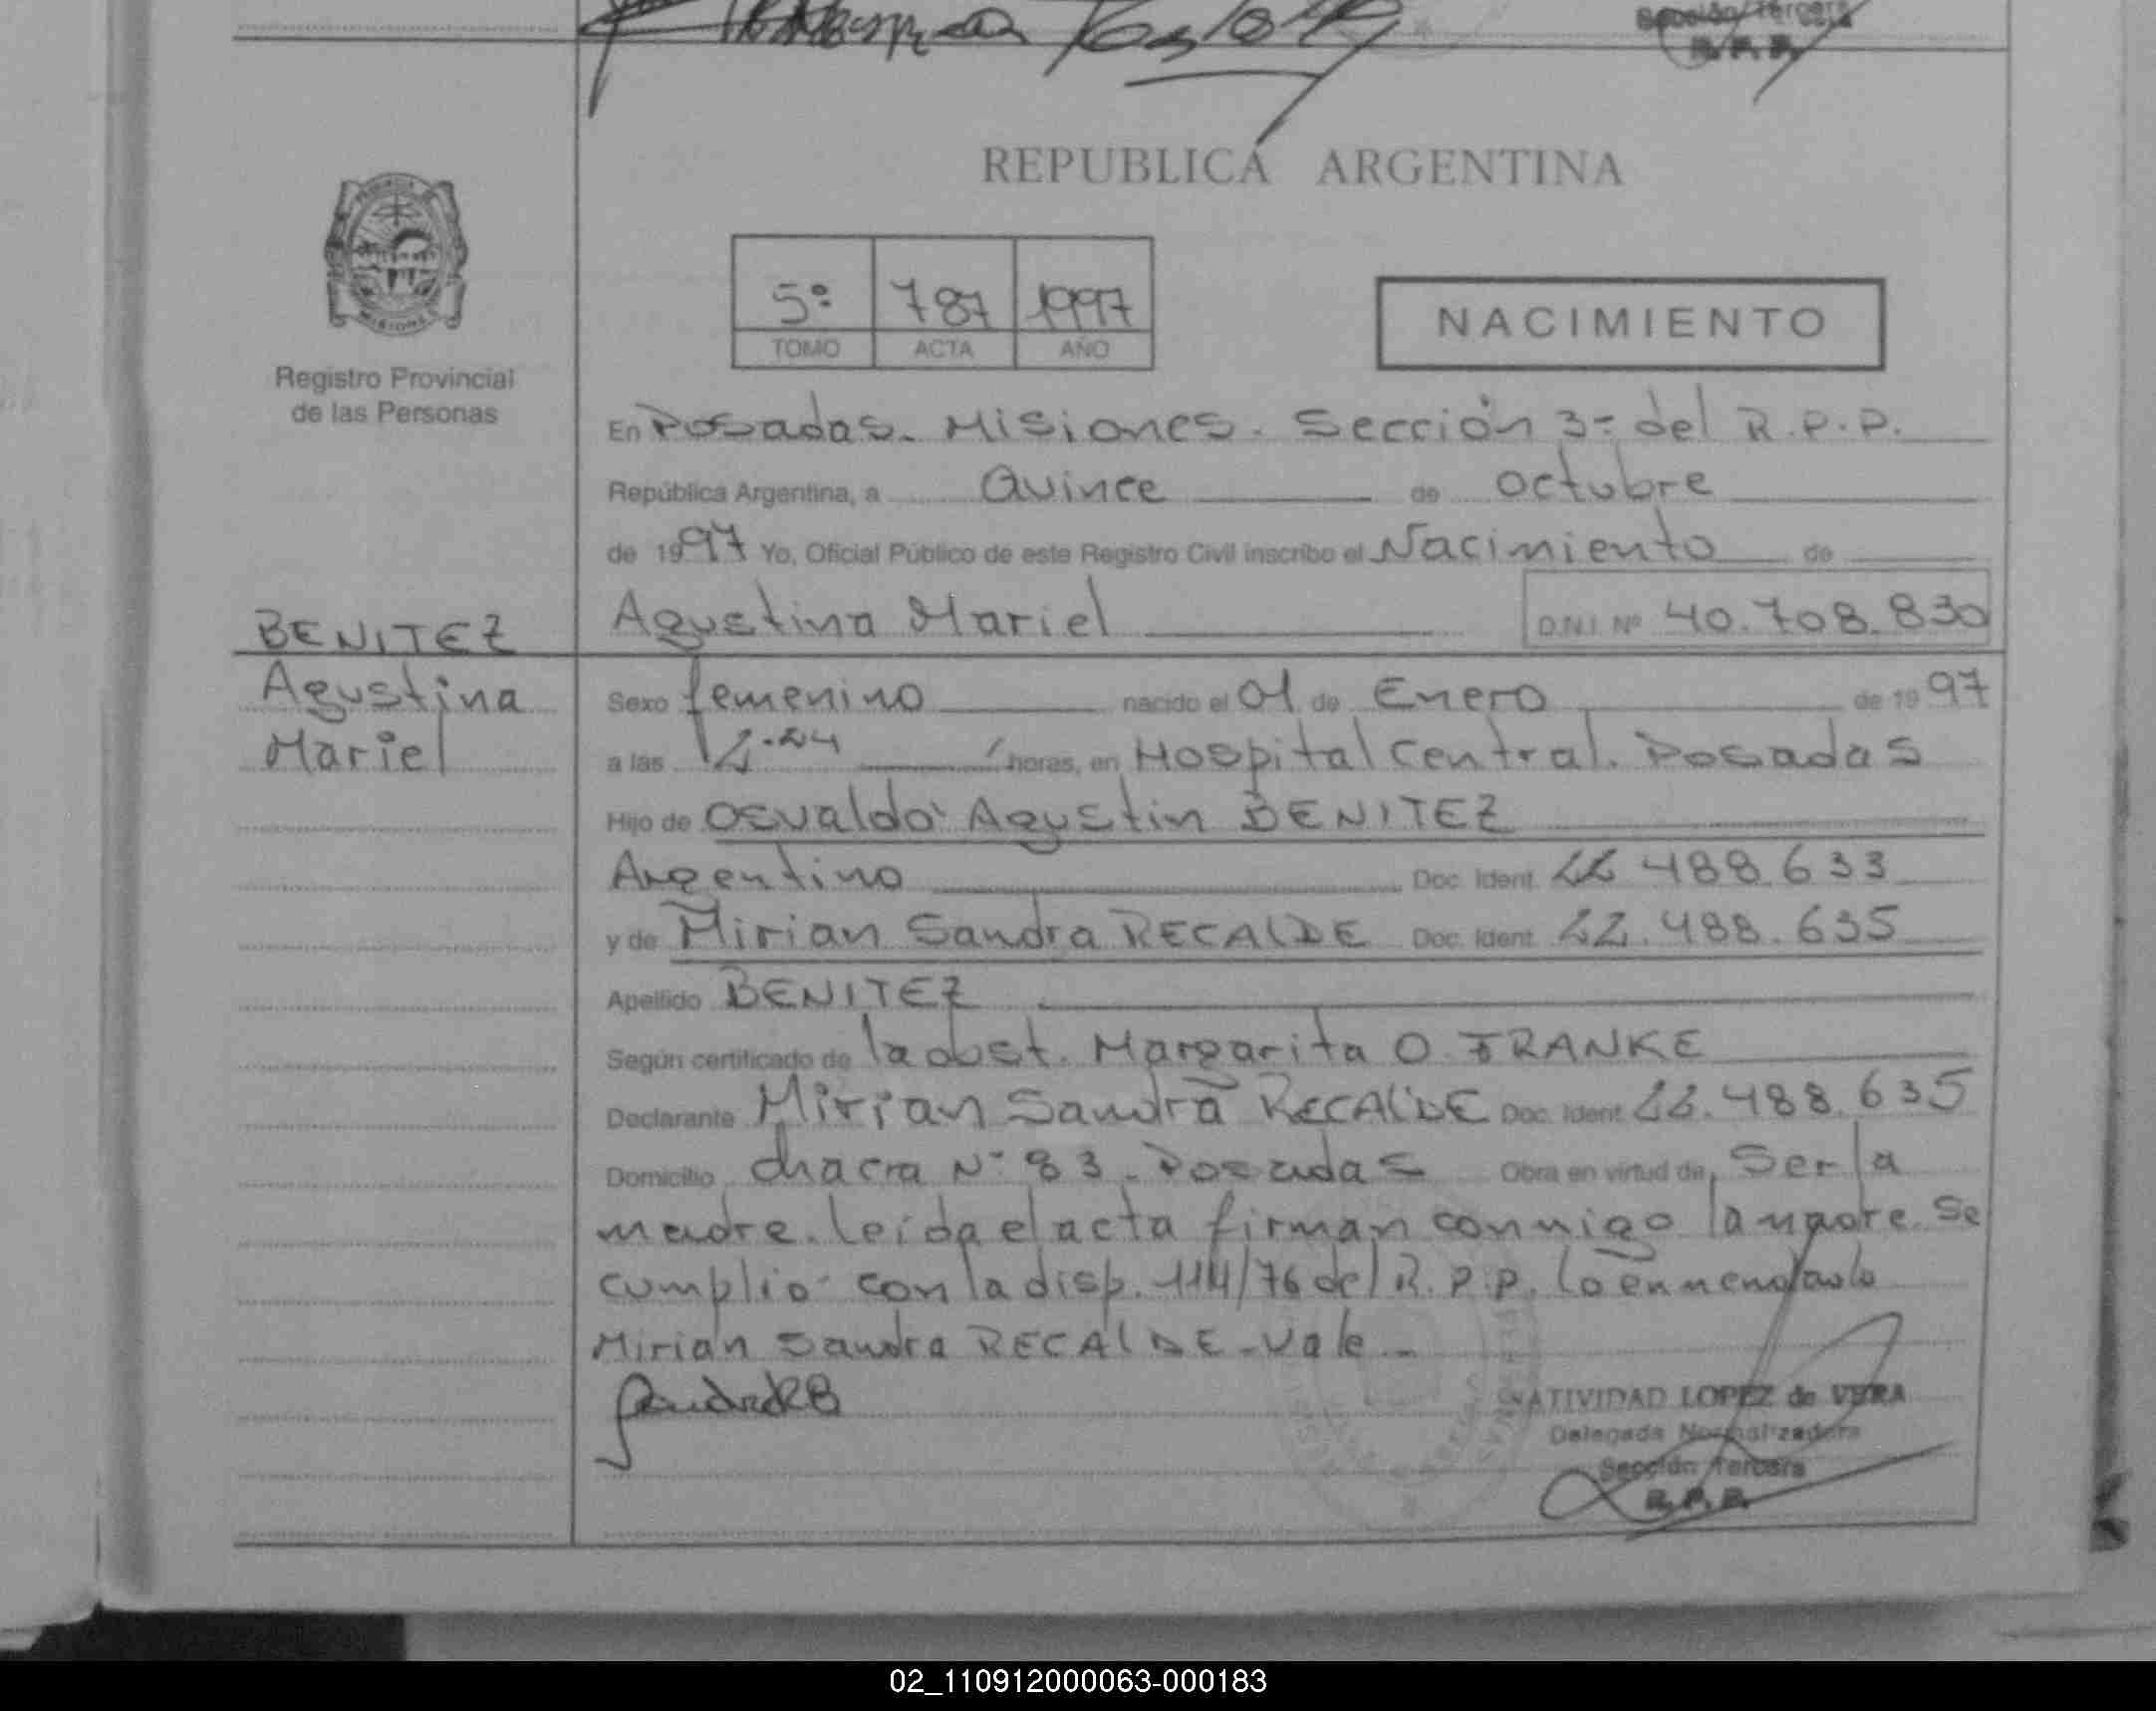 Sección Tercera
R. P. P.
REPUBLICA ARGENTINA
5º 787 1997
TOMO ACTA AÑO
NACIMIENTO
MISIONES
Registro Provincial
de las Personas
En Posadas. Misiones. Sección 3= del R.P.P.
República Argentina, a Quince de octubre
de 1997 Yo, Oficial Público de este Registro Civil inscribo el Nacimiento de
BENITEZ
Agustina Mariel D.N.I. Nº 40.708.830
Agustina
Mariel
Sexo femenino nacido el 01 de Enero de 1997
a las horas, en Hospital Central. Posadas
Hijo de Osvaldo Agustin BENITEZ
Argentino Doc. Ident. 22 488.633
y de Mirian Sandra RECALDE Doc. Ident. 22.488.635
Apellido BENITEZ
Según certificado de la obst. Margarita O. FRANKE
Declarante Mirian Sandra RECALDE Doc. Ident. 22.488.635
Domicilio chacra Nº 83 - Posadas Obra en virtud de, Ser la
madre. leída el acta firman conmigo la madre. Se
cumplio con la disp. 114/76 del R.P.P. Lo enmendado
Mirian Sandra RECALDE - Vale -
SandraRB
NATIVIDAD LOPEZ de VERA
Delegada Normalizadora
Sección Tercera
R. P. P.
02_110912000063-000183